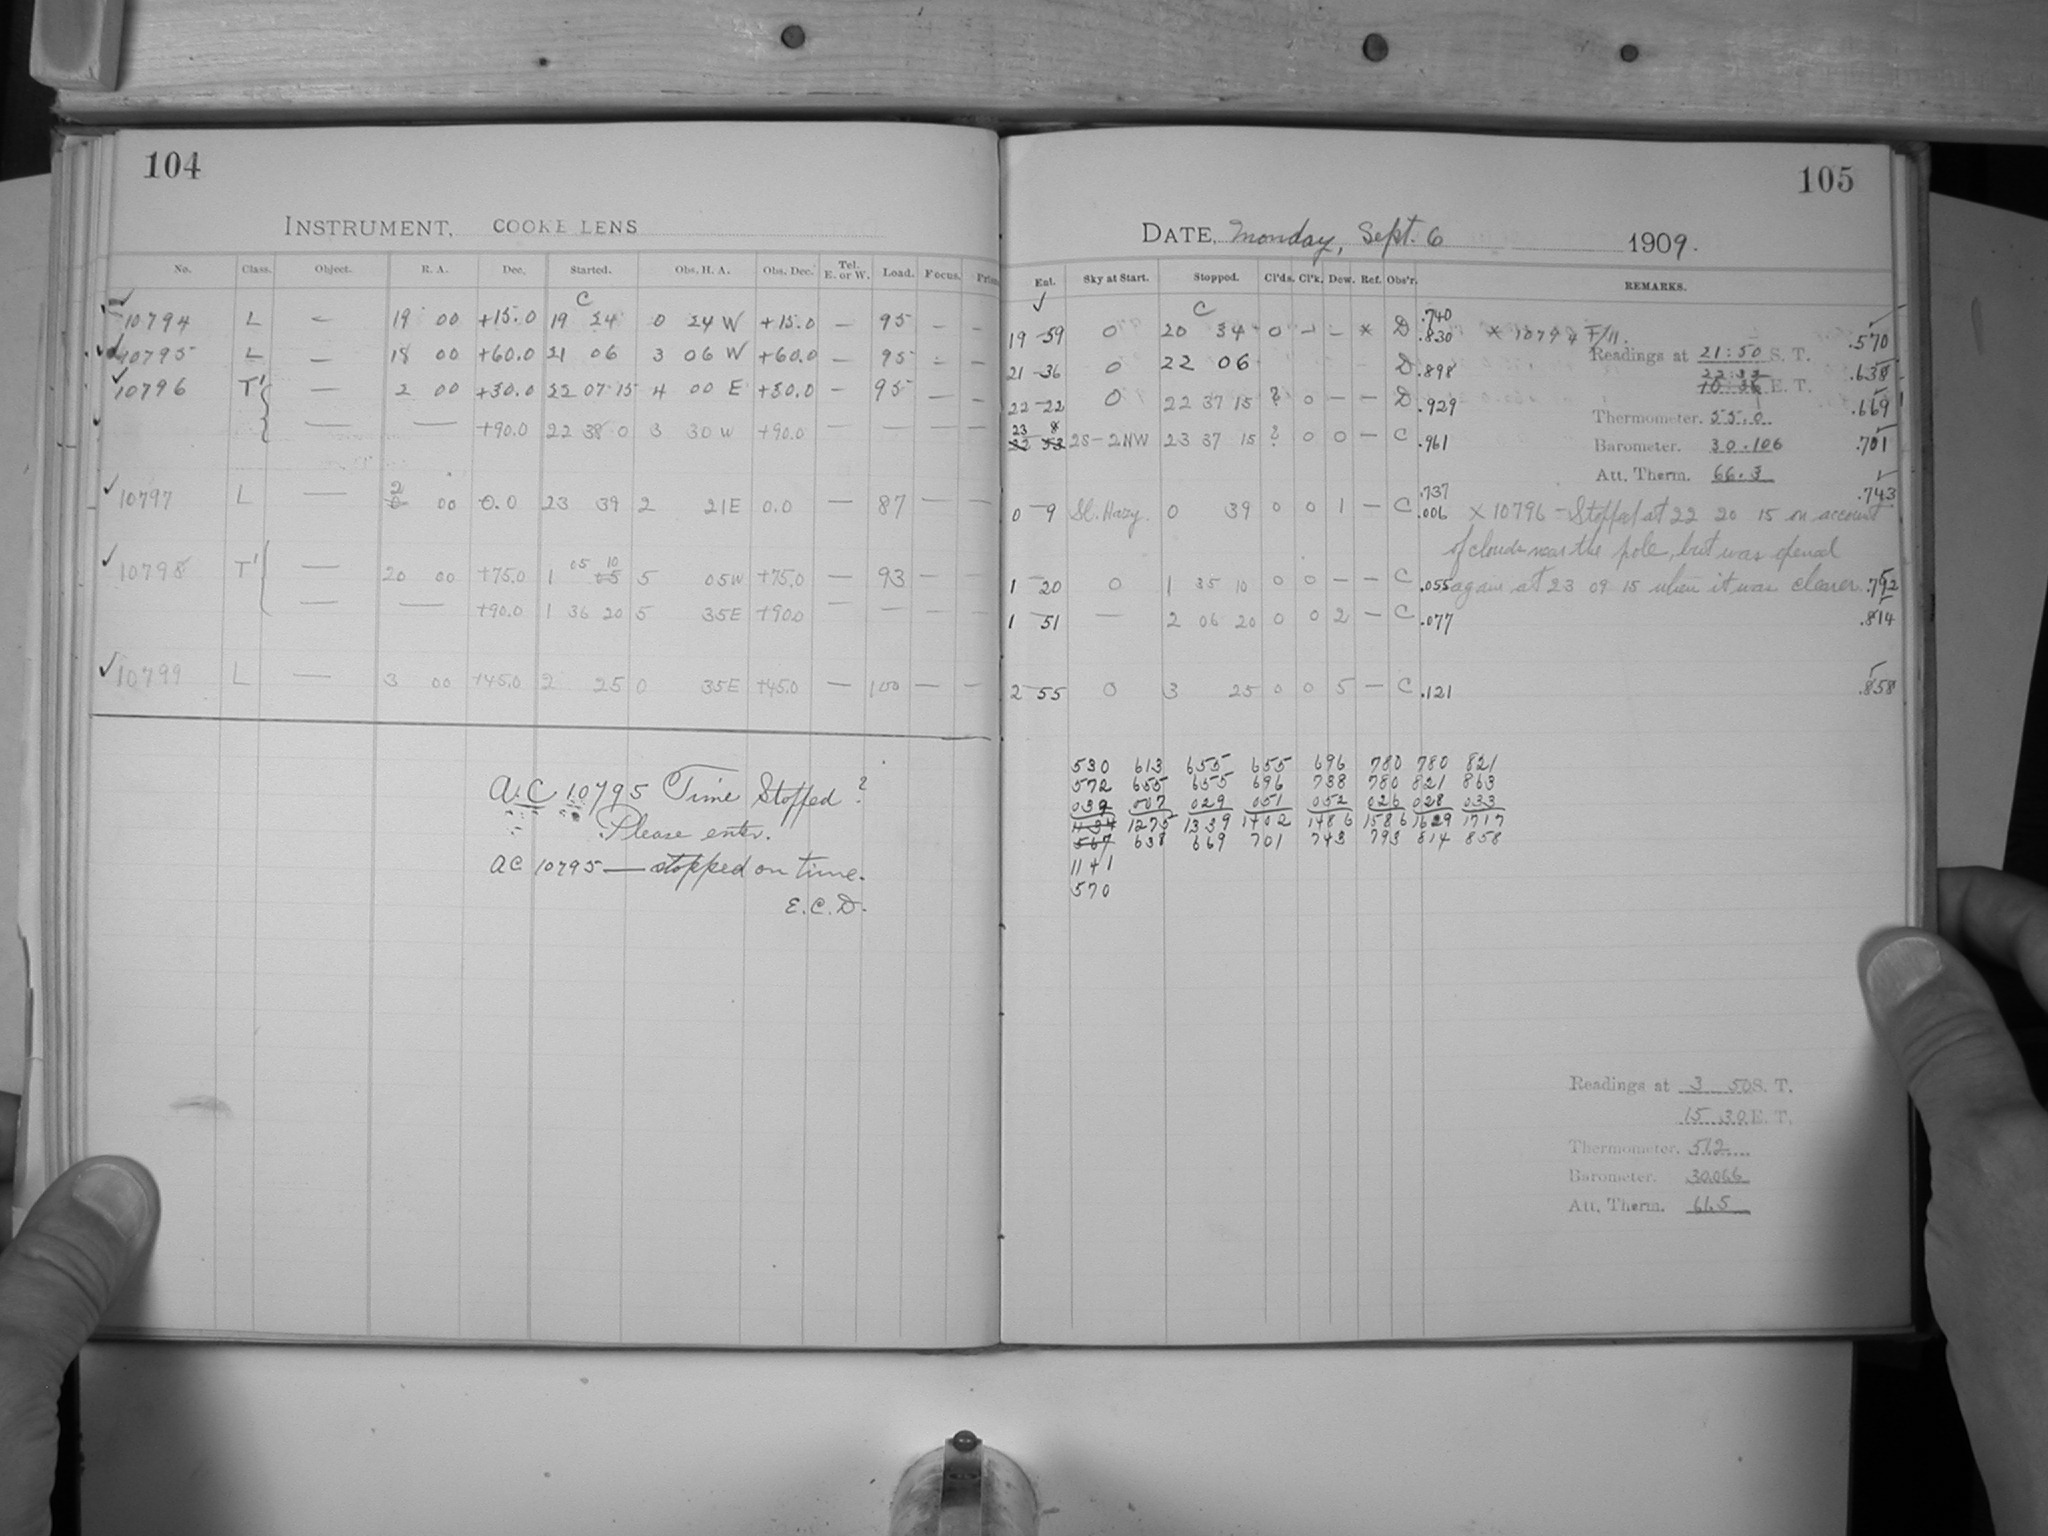 104
INSTRUMENT, COOKE LENS
No. Class. Object. R. A. Dec. Started. Obs. H. A. Obs. Dec. Tel. E. or W. Load. Focus. Prism
C
10794 L — 19 00 +15.0 19 24 0 24 W +15.0 — 95 — —
10795 L — 18 00 +60.0 21 06 3 06 W +60.0 — 95 — —
10796 T' — 2 00 +30.0 22 07 15 4 00 E +30.0 — 95 — —
— — +90.0 22 38 0 3 30 W +90.0 — — — —
2
10797 L — 00 0.0 23 39 2 21 E 0.0 — 87 — —
05 10
10798 T' — 20 00 +75.0 1 05 5 05 W +75.0 — 93 — —
— — +90.0 1 36 20 5 35 E +90.0 — — — —
10799 L — 3 00 +45.0 2 25 0 35 E +45.0 — 100 — —
A.C 10795 Time Stopped?
Please enter.
AC 10795 — stopped on time.
E.C.D.
105
DATE, Monday, Sept. 6 1909.
Ent. Sky at Start. Stopped. Cl'ds. Cl'k. Dew. Ref. Obs'r. REMARKS.
✓ C .740
19 59 0 20 34 0 — — * D .830 × 10794 F/11. .570
Readings at 21:50 S. T.
21 36 0 22 06 D .898 .638
22:33
10 36 E. T.
22 22 0 22 37 15 ? 0 — — D .929 .669
Thermometer. 55.0
23 8
22 53 2S-2NW 23 37 15 ? 0 0 — C .961 .701
Barometer. 30.106
Att. Therm. 66.3
.737 .743
0 9 Sl. Hazy. 0 39 0 0 1 — C .006 × 10796 — Stopped at 22 20 15 on account
of clouds near the pole, but was opened
1 20 0 1 35 10 0 0 — — C .055 again at 23 09 15 when it was clearer .792
1 51 — 2 06 20 0 0 2 — C .077 .814
2 55 0 3 25 0 0 5 — C .121 .858
530 613 655 655 696 780 780 821
572 655 655 696 738 780 821 863
039 007 029 051 052 026 028 033
1134 1275 1339 1402 1486 1586 1629 1717
567 638 669 701 743 793 814 858
1141
570
Readings at 3 50 S. T.
15 30 E. T.
Thermometer. 51.2
Barometer. 30.066
Att. Therm. 66.5